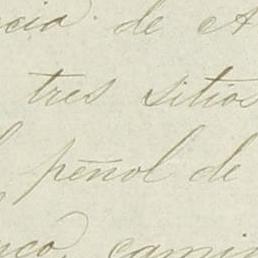 cia. de A
tres sitios
peñol de
nco, camin